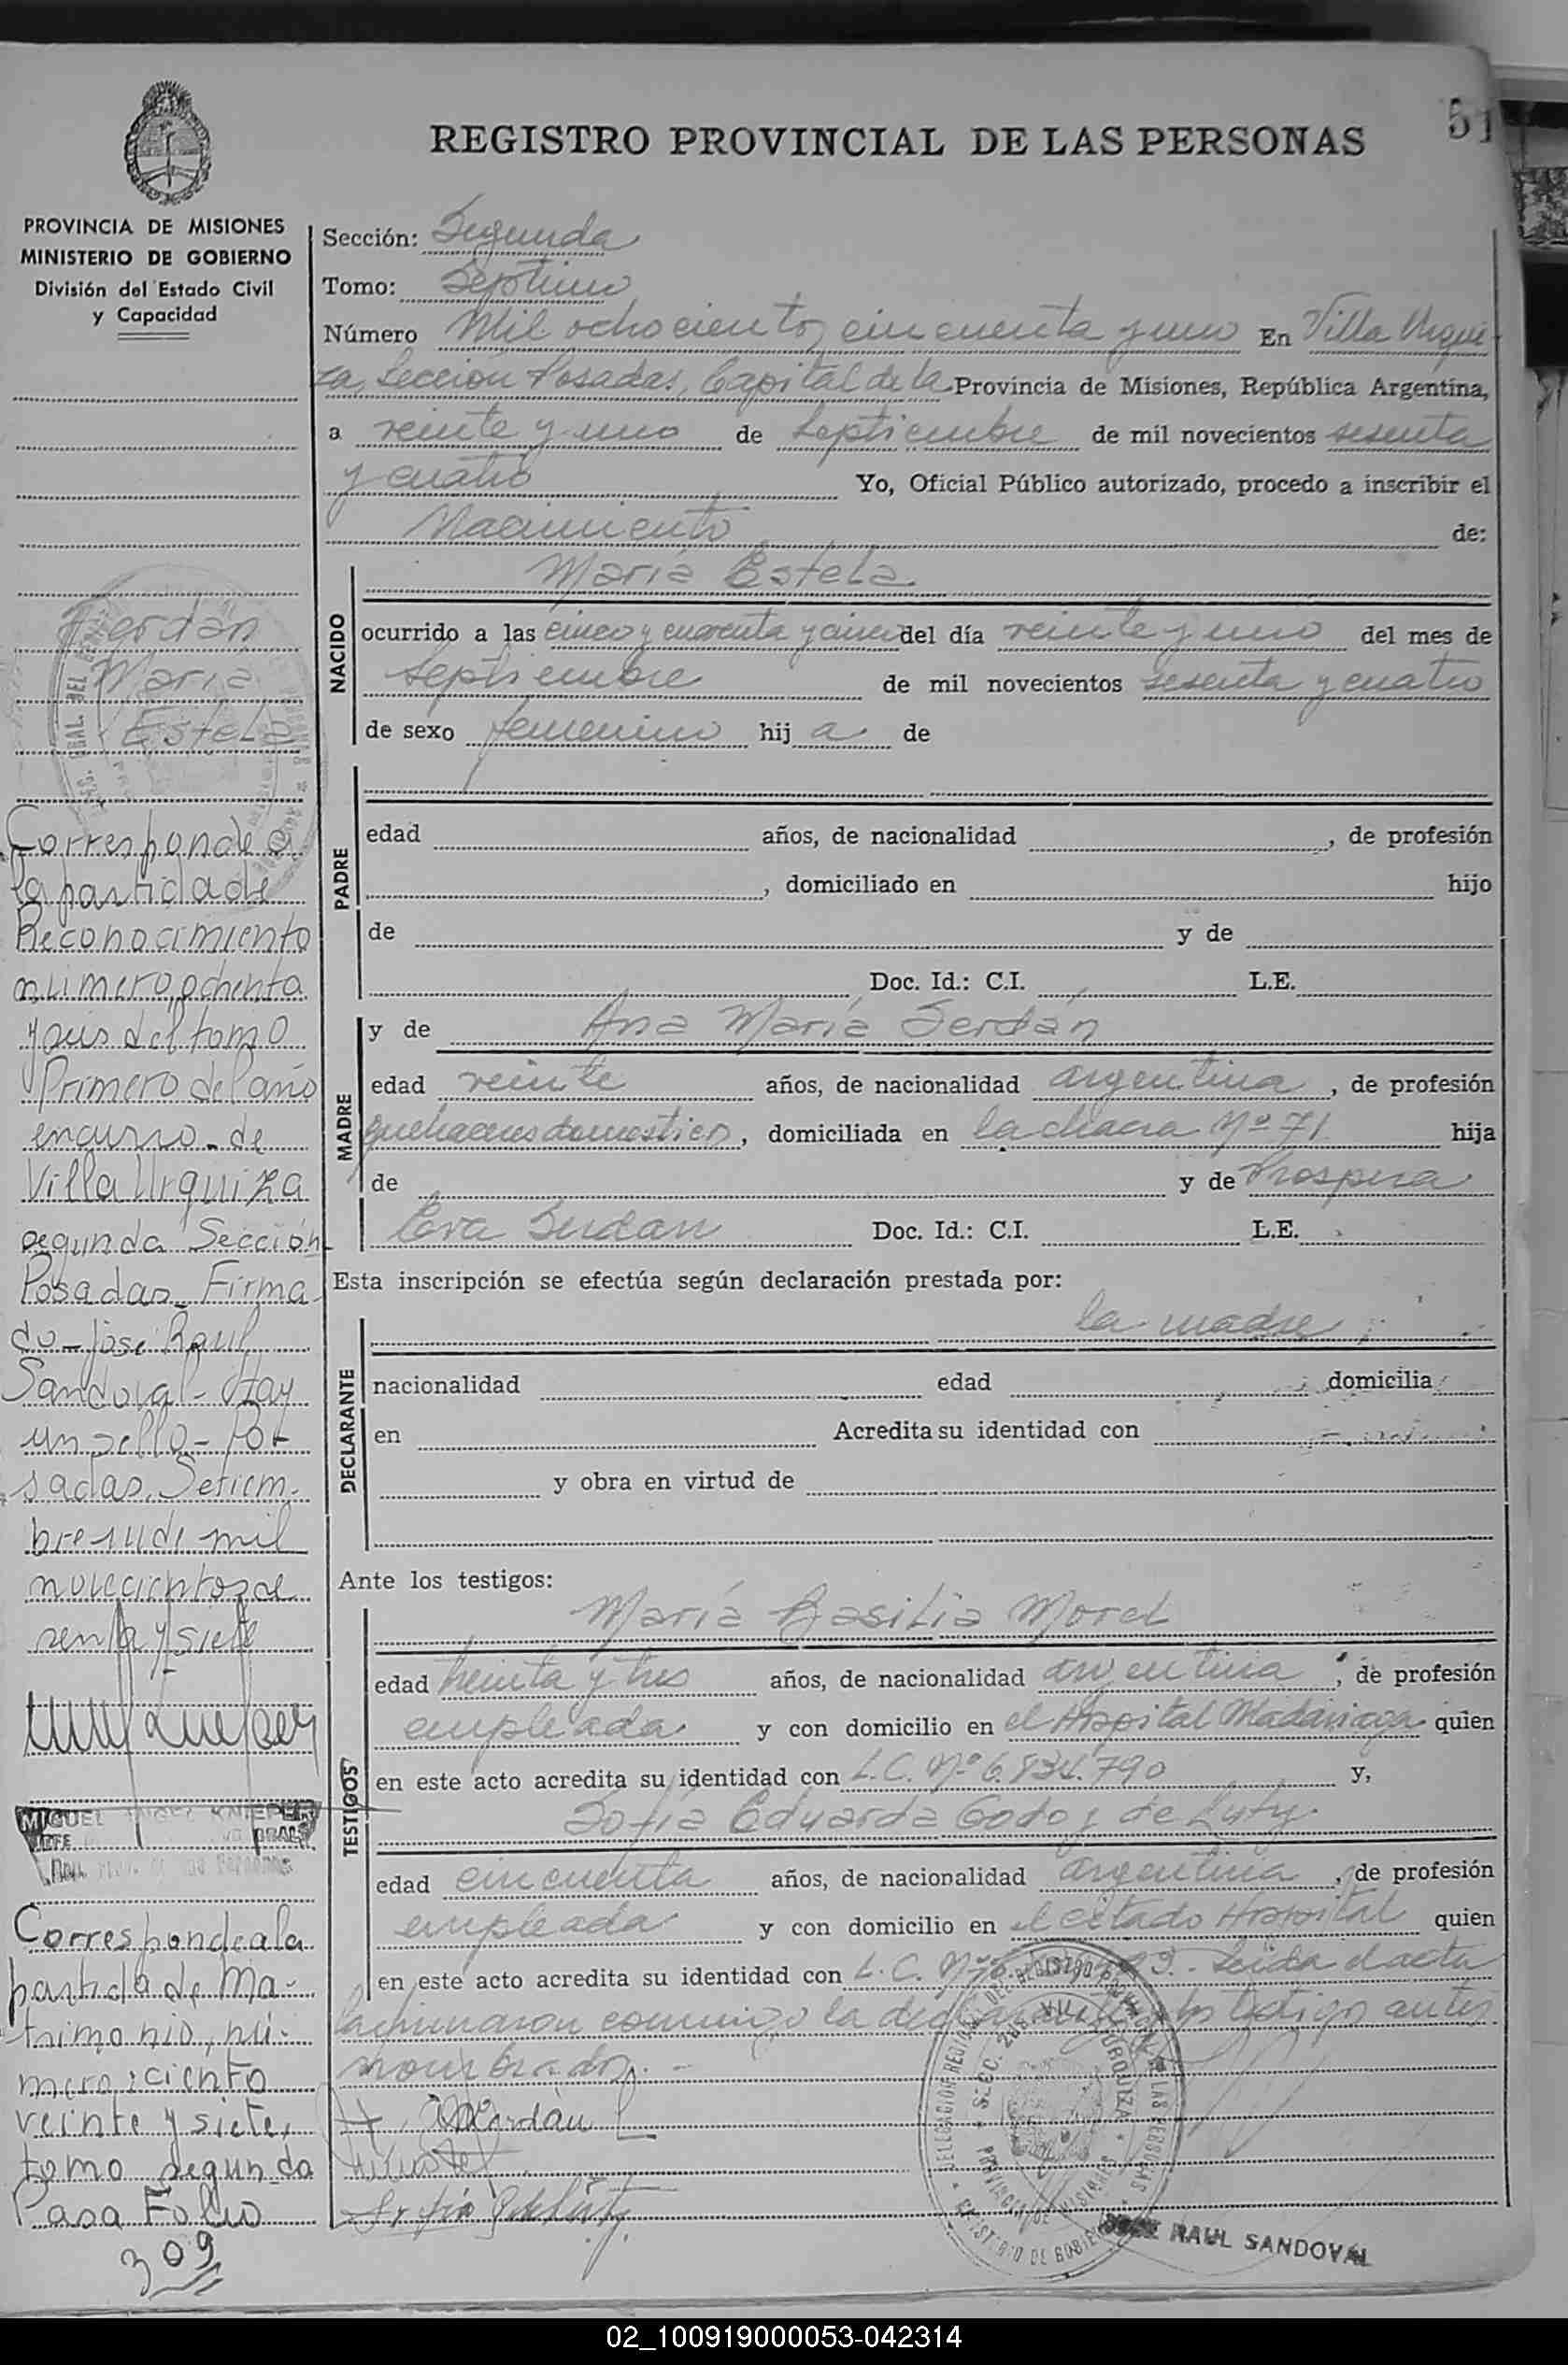 51
REGISTRO PROVINCIAL DE LAS PERSONAS
PROVINCIA DE MISIONES
MINISTERIO DE GOBIERNO
División del Estado Civil
y Capacidad
Sección: Segunda
Tomo: Septimo
Número Mil ochocientos cincuenta y uno En Villa Urqui-
za, Sección Posadas, Capital de la Provincia de Misiones, República Argentina,
a veinte y uno de Septiembre de mil novecientos sesenta
y cuatro Yo, Oficial Público autorizado, procedo a inscribir el
Nacimiento de:
NACIDO
María Estela
ocurrido a las cinco y cuarenta y cinco del día veinte y uno del mes de
Septiembre de mil novecientos sesenta y cuatro
de sexo femenino hij a de
PADRE
edad años, de nacionalidad , de profesión
, domiciliado en hijo
de y de
Doc. Id.: C.I. L.E.
MADRE
y de Ana María Serdán
edad veinte años, de nacionalidad argentina, de profesión
quehaceres domesticos, domiciliada en la chacra Nº 71 hija
de y de Prospera
Eva Serdan Doc. Id.: C.I. L.E.
Esta inscripción se efectúa según declaración prestada por:
DECLARANTE
la madre
nacionalidad edad domicilia
en Acredita su identidad con
y obra en virtud de
Ante los testigos:
TESTIGOS
María Basilia Morel
edad treinta y tres años, de nacionalidad argentina, de profesión
empleada y con domicilio en el Hospital Madariaga quien
en este acto acredita su identidad con L.C. Nº 6.834.790 y,
Sofía Eduarda Godoy de
edad cincuenta años, de nacionalidad argentina, de profesión
empleada y con domicilio en el citado Hospital quien
en este acto acredita su identidad con L.C. Nº Leida el acta
la firmaron conmigo la declarante y los testigos antes
nombrados.-
JOSE RAUL SANDOVAL
María
Estela
Corresponde a
la partida de
Reconocimiento
numero, ochenta
y seis del tomo
Primero del año
en curso. de
Villa Urquiza
segunda Sección
Posadas- Firma
do- José Raul
Sandoval- Hay
un sello- Po-
sadas, Setiem-
bre de mil
novecientos se
senta y siete
MIGUEL ANGEL KNIEPER
JEFE
Corresponde a la
partida de Ma-
trimonio, nú-
mero, ciento
veinte y siete,
tomo segundo
Pasa Folio
309
02_100919000053-042314